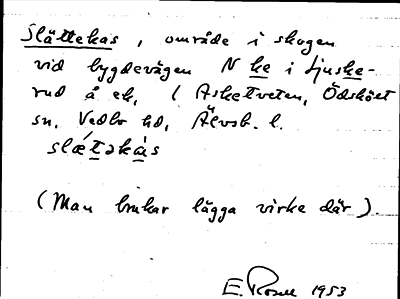 Slättekas, område i skogen
vid bygdevägen N ke i Ljuske-
rud å ek, (Asketveten, Ödskölt
sn, Vedbo hd, Älvsb. l.
slæ´tǝkàs
(Man brukar lägga virke där)
E. Rosell 1953